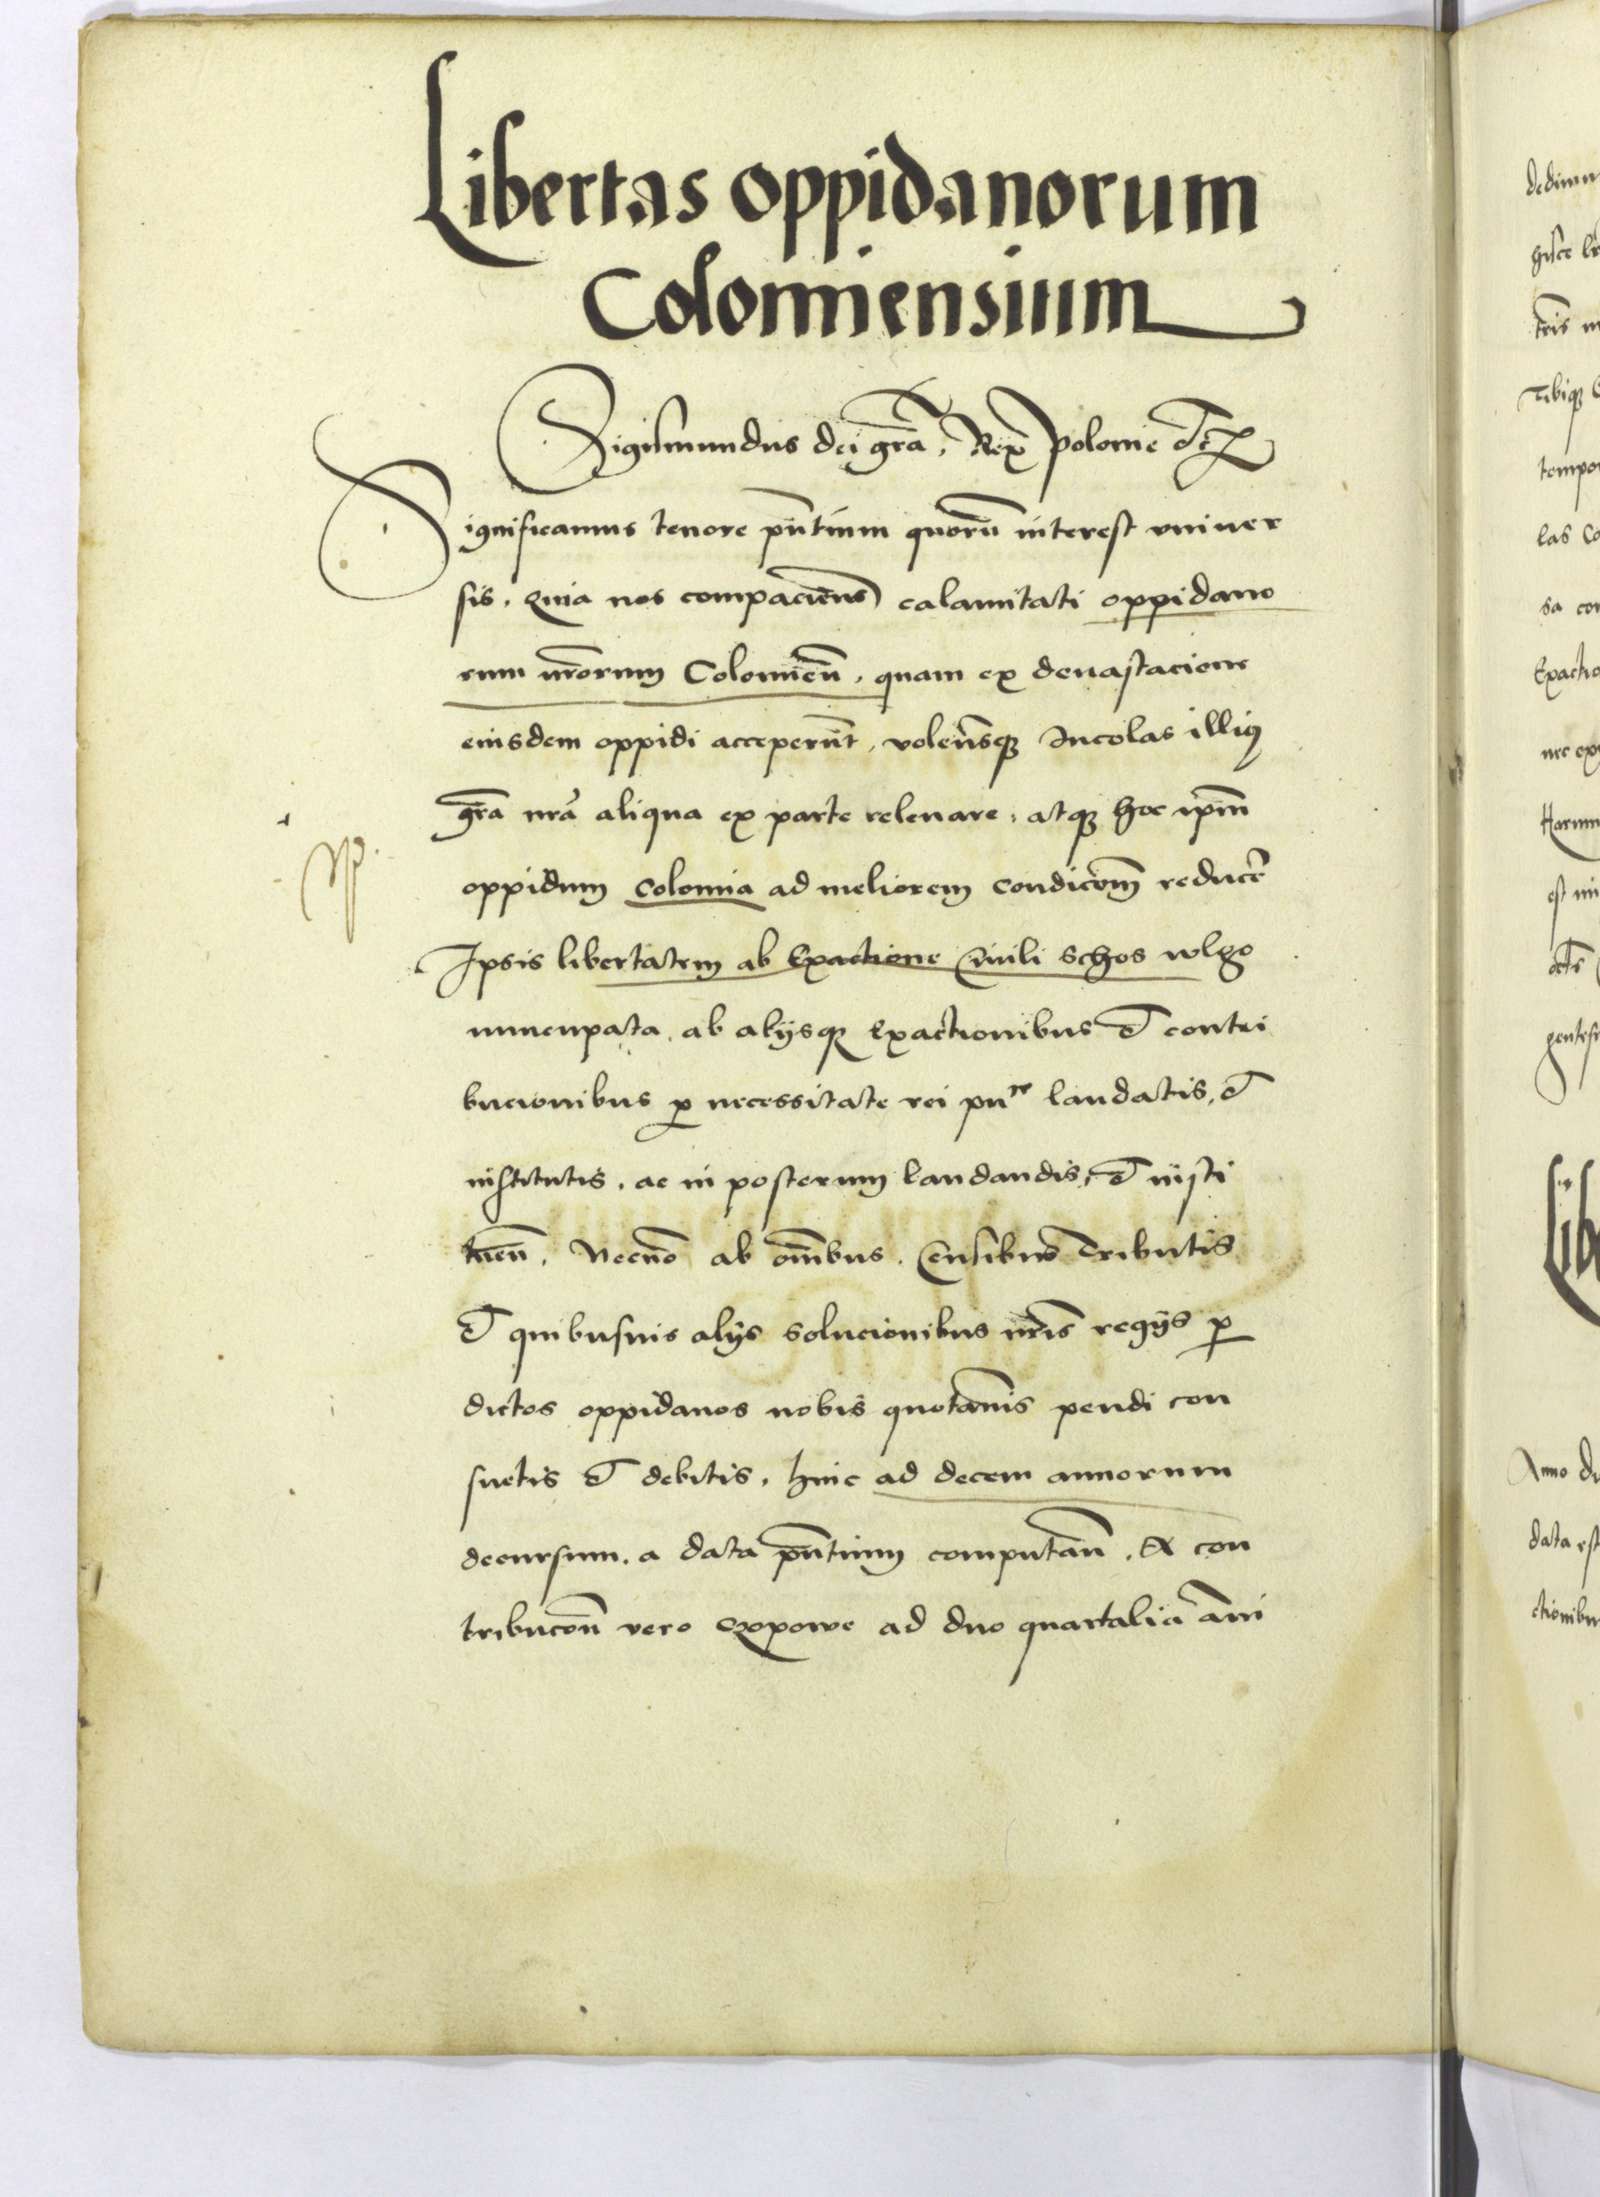 Libertas oppidanorum
Colomiensium
Sigismundus dei gr̃a. Rex Polonie etc
Significamus tenore pñtium quorũ interest vniuer
sis. Quia nos compaciens calamitati oppidano
rum nr̃orum Colomien̄. quam ex deuastacione
eiusdem oppidi acceperũt, volen̄sqȝ Incolas illiꝰ
gr̃a nr̃a aliqua ex parte releuare, atqȝ hoc ip̄m
oppidum Colomia ad meliorem condicōm̄ reducer̃
Ipsis libertatem ab Exactione Ciuili schos volgo
nuncupata. ab alijsqȝ Exactionibus et contri
bucionibus ꝑ necessitate rei pun̄ce laudatis, et
institutis. ac in posterum laudandis, et insti
tuen̄. Necnō ab om̄ibus. Censibus Tributis
et quibusuis alijs solucionibus nr̃is regijs ꝑ
dictos oppidanos nobis quotannis pendi con
suetis et debitis. hinc ad decem annorum
decursum. a data pñtium computan̄. A con
tribucōn̄ vero Czopowe ad duo quartalia anni
dedimu
hisce lr̃
tr̃is
Tibiqȝ
tempor
las Co
sa con
Exactio
nec exp
Harum
est
gentesi
Lib
Anno d
data est
ctionibu